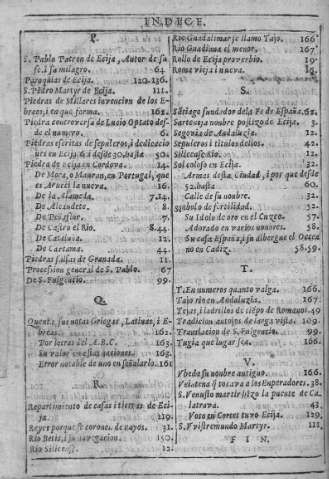 INDICE.
P.
S. Pablo Patron de Ecija, Autor de su
fè. i su milagro. 64
Paroquias de Ecija. 120. 136.
S. Pedro Martyr de Ecija. 111.
Piedras de Millares invencion de los
breos, i en que forma. 161.
Piedra con reversa de Lucio Optato des
de el numero. 6.
Piedras escritas de sepulcros, i dedicacio
nes en Ecija. 6. i desde 30. hasta 50.
Piedra de Ecija en Cordova. 14.
De Mora, o Mouran, en Portugal, que
es Arucci la nueva. 16.
De la Rameda. 7. 14.
De Alcaudete. 8.
De Peñaflor. 7.
De Castro el Rio. 8. 44.
De Cazalla. 12.
De Cartama. 44.
Piedras falsas de Granada. 11.
Procession general de S. Pablo. 67
De S. Fulgencio. 99.
Q.
Quenta, sus notas Griegas, Latinas, i E-
breas. 162.
Por letras del A.B.C. 163.
Su valor en estas naciones. 163.
Error notable de uno en señalarlo. 161
R.
Repartimiento de casas i tierras de Eci
ja. 119.
Reyes porque se coronen de rayos. 31.
Rio Betis, i su navegacion. 150.
Rio Silicense. 12.
Rio Guadalimar se llamo Tajo. 166
Rio Guadiana el menor. 167
Rollo de Ecija proverbio. 19.
Roma vieja i nueva. 19.
S.
Sātiago fundador de la Fè de España. 62.
Sartorexa nombre postizo de Ecija. 3.
Segovia de Andaluzia. 12.
Sepulcros i titulos dellos. 42.
Silicense Rio. 12.
Sol coloso en Ecija. 32.
Armas desta Ciudad, i por que desde
52. hasta 60.
Calle de su nombre. 32.
Simbolo de fertilidad. 32.
Su Idolo de oro en el Cuzco. 57.
Adorado en varios nombres. 58.
Su casa España, i su albergue el Occea
no en Cadiz. 58. 59.
T.
T. En numeros quanto valga. 166.
Tajo rio en Andaluzia. 167.
Tejas, i ladrillos de tiempo de Romanos. 49
Tradicion autojos de larga vista. 109.
Translacion de S. Fulgencio. 99.
Tugia que lugar sea. 166.
V.
Vbeda su nombre antiguo. 166.
Violetena se tocava a los Emperadores. 38.
S. Venusto martirizò la puente de Ca
latrava. 43.
Voto en Cortes tuvo Ecija. 129.
S. Vvistremundo Martyr. 111.
F I N.